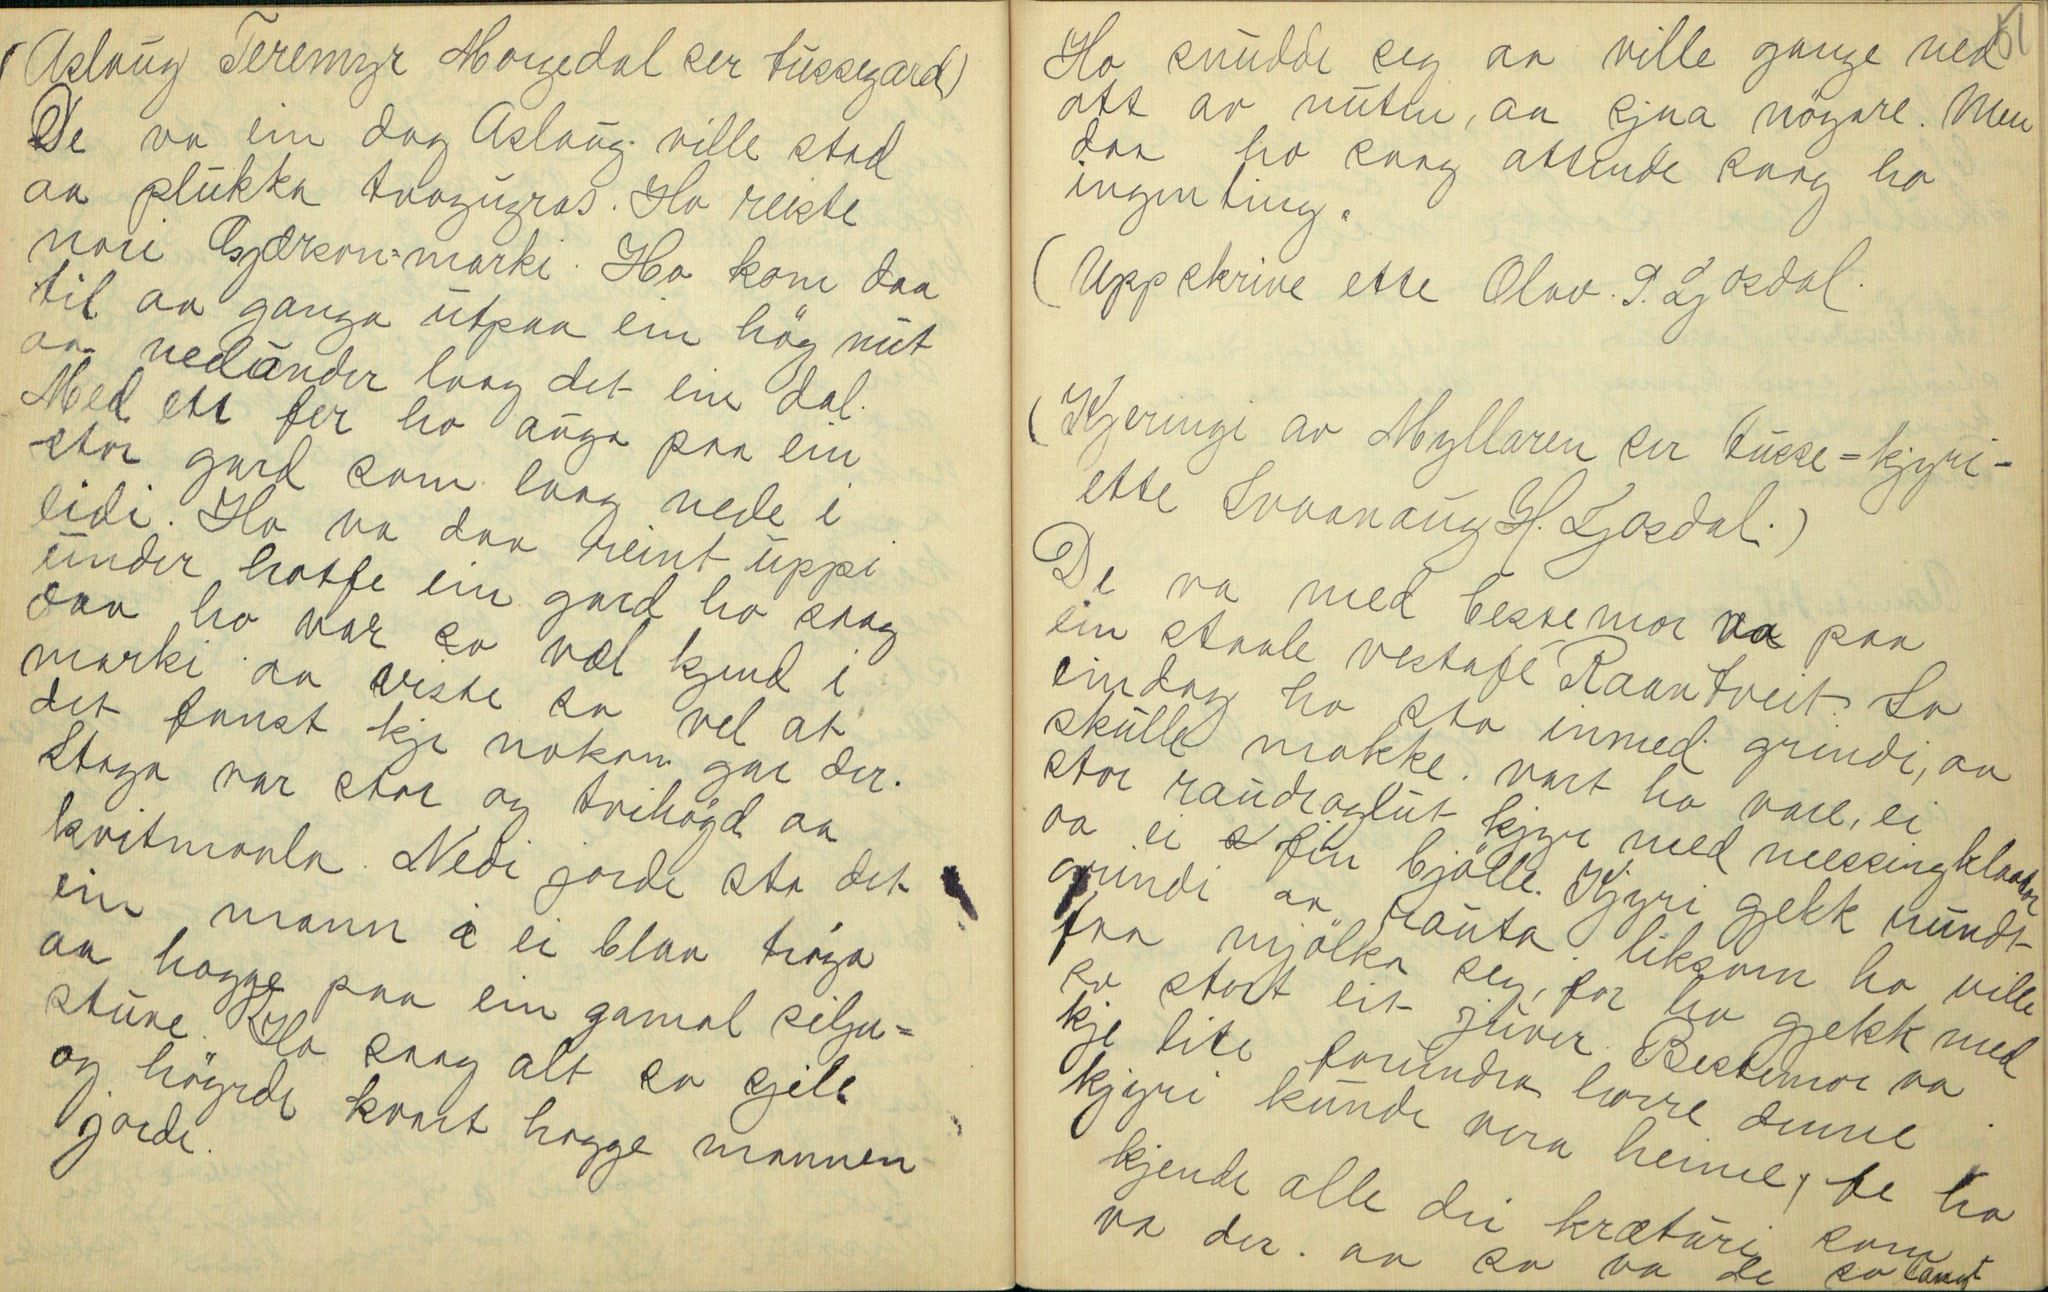 (Aslaug Teremyr Morgedal ser tussegard)
De va ein dag Aslaug ville stad
aa plukka traagugras. Ho reiste
nori Bjørkon-marki. Ho kom daa
til aa ganga utpaa ein hög nut
aa nedunder laag det ein dal.
Med ett fer ho auga paa ein
stor gard som laag nede i
eidi. Ho va daa reint uppi
under hatte ein gard ho saag
daa ho var so væl kjend i
marki aa viste so vel at
det fanst kje nokon gar der.
Stoga var stor og tvihögd aa
kvitmaala. Nedi jorde sto det
ein mann i ei blaa tröya
aa hogge paa ein gamal selju-
stuve. Ho saag alt so gjilt
og höyrde kvart hogge mannen
jorde.
51
Ho snudde seg aa ville gange ned
att av nuten, aa sjaa nögare. Men
daa ho saag attende saag ho
ingenting.
(Uppskrive ette Olav. P. Ljosdal.
(Kjeringi av Myllaren ser tusse-kjyri-
ette Svaanaug H. Ljosdal.)
De va med bestemor va paa
ein staale vestafe Raantveit. So
eindag ho sto inmed grindi, aa
skulle mokke. vart ho vare, ei
stor raudraglut kjyr med messingklaavar
aa ei fin bjölle. Kjyri gjekk rundt
grindi aa rauta liksom ho ville
faa mjölka seg, for ho gjekk med
so stort eit juver. Bestemor va
kje lite forundra korre denne
kjyri kunde vera heime, fe ho
kjende alle dei kræturi som
va der. aa so va de so langt